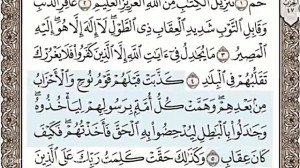 حمٓ ١ تَنزِيلُ ٱلْكِتَٰبِ مِنَ ٱللَّهِ ٱلْعَزِيزِ ٱلْعَلِيمِ ٢ غَافِرِ ٱلذَّنۢبِ
وَقَابِلِ ٱلتَّوْبِ شَدِيدِ ٱلْعِقَابِ ذِى ٱلطَّوْلِ لَآ إِلَٰهَ إِلَّا هُوَ إِلَيْهِ
ٱلْمَصِيرُ ٣ مَا يُجَٰدِلُ فِىٓ ءَايَٰتِ ٱللَّهِ إِلَّا ٱلَّذِينَ كَفَرُوا۟ فَلَا يَغْرُرْكَ
تَقَلُّبُهُمْ فِى ٱلْبِلَٰدِ ٤ كَذَّبَتْ قَبْلَهُمْ قَوْمُ نُوحٍ وَٱلْأَحْزَابُ
مِنۢ بَعْدِهِمْ وَهَمَّتْ كُلُّ أُمَّةٍۭ بِرَسُولِهِمْ لِيَأْخُذُوهُ
وَجَٰدَلُوا۟ بِٱلْبَٰطِلِ لِيُدْحِضُوا۟ بِهِ ٱلْحَقَّ فَأَخَذْتُهُمْ فَكَيْفَ
كَانَ عِقَابِ ٥ وَكَذَٰلِكَ حَقَّتْ كَلِمَتُ رَبِّكَ عَلَى ٱلَّذِينَ